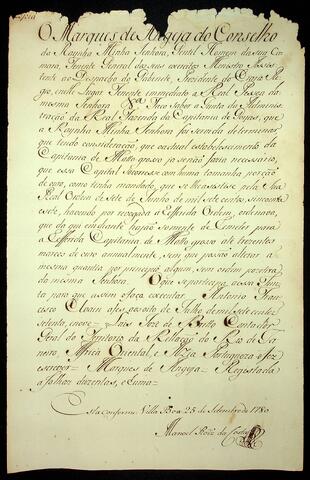 Copia
O Marquez de Angeja do Conselho
da Raynha Minha Senhora, Gentil Homem da Sua Ca-
mara, Tenente General dos seus exercitos Menistro Assis-
tente ao Despacho do Gabinete, Prezidente do Erario Re-
gio, e nelle Lugar Tenente immediato a Real Pessoa da
mesma Senhora &a Faço Saber a Junta da Adminis-
tração da Real Fazenda da Capitania de Goyas, que
a Raynha Minha Senhora foi servida determinar,
que tendo consideração, que o actual estabelecimento da
Capitania de Matto grosso ja não será necessario,
que essa Capital Socorresse com huma tamanha porção
de ouro, como tenha mandado, que se lhe assistisse pela Sua
Real Ordem de Sete de Junho de mil sete centos, sincoenta
e sete, havendo por revogada a Efferida Ordem, ordenar,
que da qui em diante hajão somente de Remeter para
a Efferida Capitania de Matto grosso até trezentos
marcos de ouro annualmente, sem que possão alterar a
mesma quantia por principio algum, sem ordem posterior
da mesma Senhora. O que se participa a essa Jun-
ta para que assim o faça executar Antonio Fran-
cisco a fes aos oito de Julho de mil sete centos
setenta, e nove = Luis Joze de Britto Contador
Geral do Territorio da Rellação do Rio de Ja-
neiro, Africa Oriental, e Azia Portugueza o fez
escrever = Marquez de Angeja = Registada
a folhas duzentas, e huma =
Esta conforme. Villa Boa 25 de Setembro de 1780
Manoel da Costa